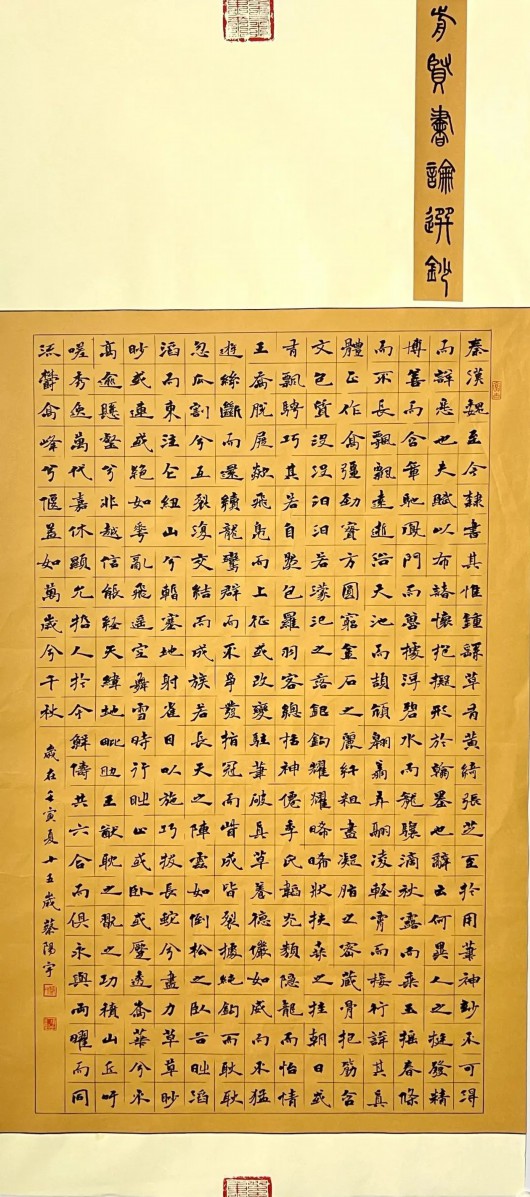 前賢書論選鈔
秦漢魏至今隸書其惟鍾繇草有黃綺張芝至於用筆神妙不可得
而詳悉也夫賦以布諸懷抱擬形於翰墨也辭云何異人之挺發精
博善而含章馳鳳門而獸據浮碧水而龍驤滴秋露而垂玉搖春條
而不長飄飄遠逝浴天池而頡頏翱翥弄翮凌輕霄而接行詳其真
體正作高強勁實方圓窮金石之麗纖粗盡凝脂之密藏骨抱筋含
文包質沒沒汩汩若濛汜之落銀鉤耀耀晞晞狀扶桑之挂朝日或
有飄騁巧其若自然包羅羽客總括神僊季氏韜光類隱龍而怡情
王喬脫屣欻飛鳧而上征或改變駐筆破真草養德儼如威而不猛
遊絲斷而還續龍鸞群而不爭發指冠而眥成皆裂據純鉤而耿耿
忽瓜割兮互裂復交結而成族若長天之陣雲如倒松之臥谷時滔
滔而東注乍紐山兮暫塞地射雀目以施巧拔長蛇兮盡力草草眇
眇或連或絕如花亂飛遙空舞雪時行時止或臥或蹷透嵩華兮不
高逾懸壑兮非越信能經天緯地毗助王猷耽之翫之功積山丘吁
嗟秀逸萬代嘉休顯允哲人於今鮮儔共六合而俱永與兩曜而同
流鬱高峰兮偃蓋如萬歲兮千秋 歲在壬寅夏十五歲蔡陽宇